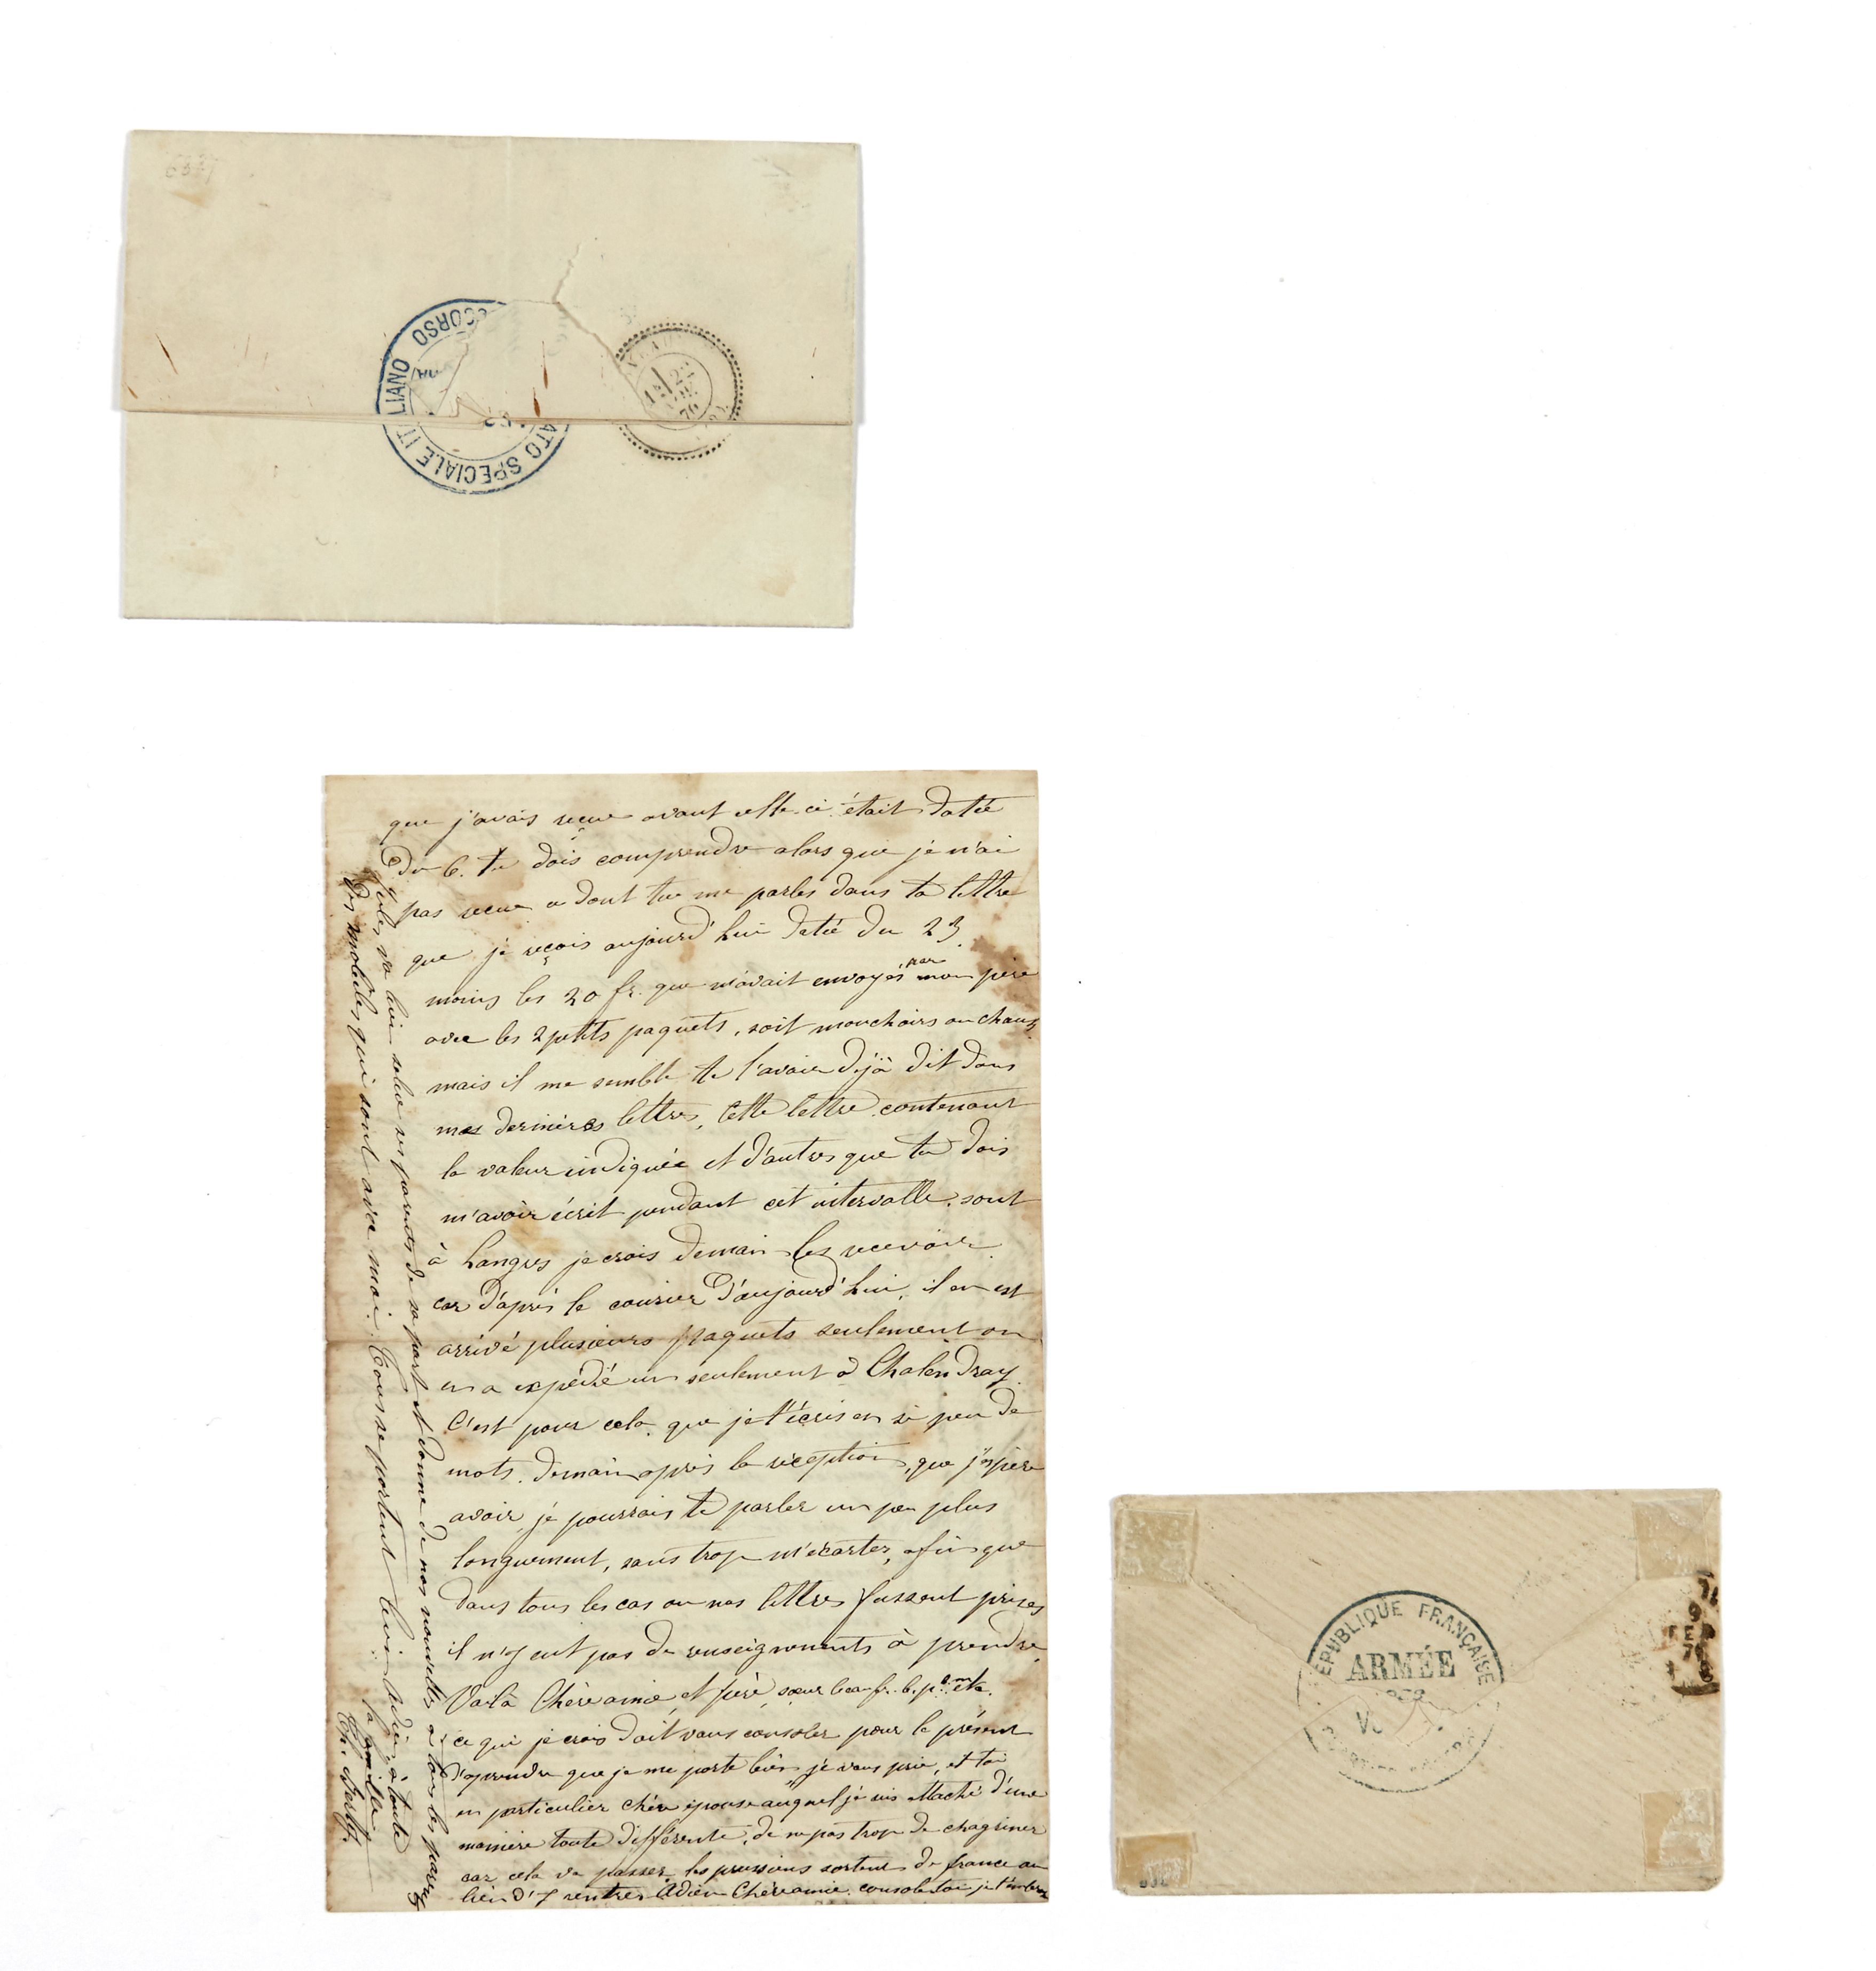 6337
SCORSO
LIANO
ATO SPECIALE IT
que j'avais reçue avant celle-ci était datée
du 6. tu dois comprendre alors que je n'ai
pas reçue a dont tu me parles dans ta lettre
que je reçois aujourd'hui datée du 23.
moins les 20 fr. que m'avait envoyés par mon père
avec les 2 petits paquets, soit mouchoirs ou chaus
mais il me semble te l'avoir déjà dit dans
mes dernières lettres, Cette lettre contenant
la valeur indiquée et d'autres que tu dois
m'avoir écrit pendant cet intervalle, sont
à Langres je crois demain les recevoir
car d'après le courier d'aujourd'hui, il en est
arrivé plusieurs paquets seulement on
en a expédié un seulement à Chalendray.
C'est pour cela que je t'écris en si peu de
mots. demain après la réception, que j'espère
avoir, je pourrais te parler un peu plus
longuement, sans trop m'écarter, afin que
dans tous les cas ou nos lettres fussent prises
il n'y eut pas de renseignements à prendre.
Voilà Chère amie, et père, sœur beau fr. b. p. etc.
ce qui je crois doit vous consoler pour le présent
d'aprendre que je me porte bien je vous prie, et toi
en particulier chère épouse auquel je suis attaché d'une
manière toute différente, de ne pas trop de chagriner
car cela va passer, les prussiens sortent de france au
lieu d'y rentrer Adieu Chère amie. console toi je t'embrasse
Jules va bien salue ses parents de sa part et donne de nos nouvelles a tous les parents
des mobiles qui sont avec moi. Tous se portent bien Adieu à toute
la famille
RÉPUBLIQUE FRANÇAISE
ARMÉE
DES
VO
9
FE